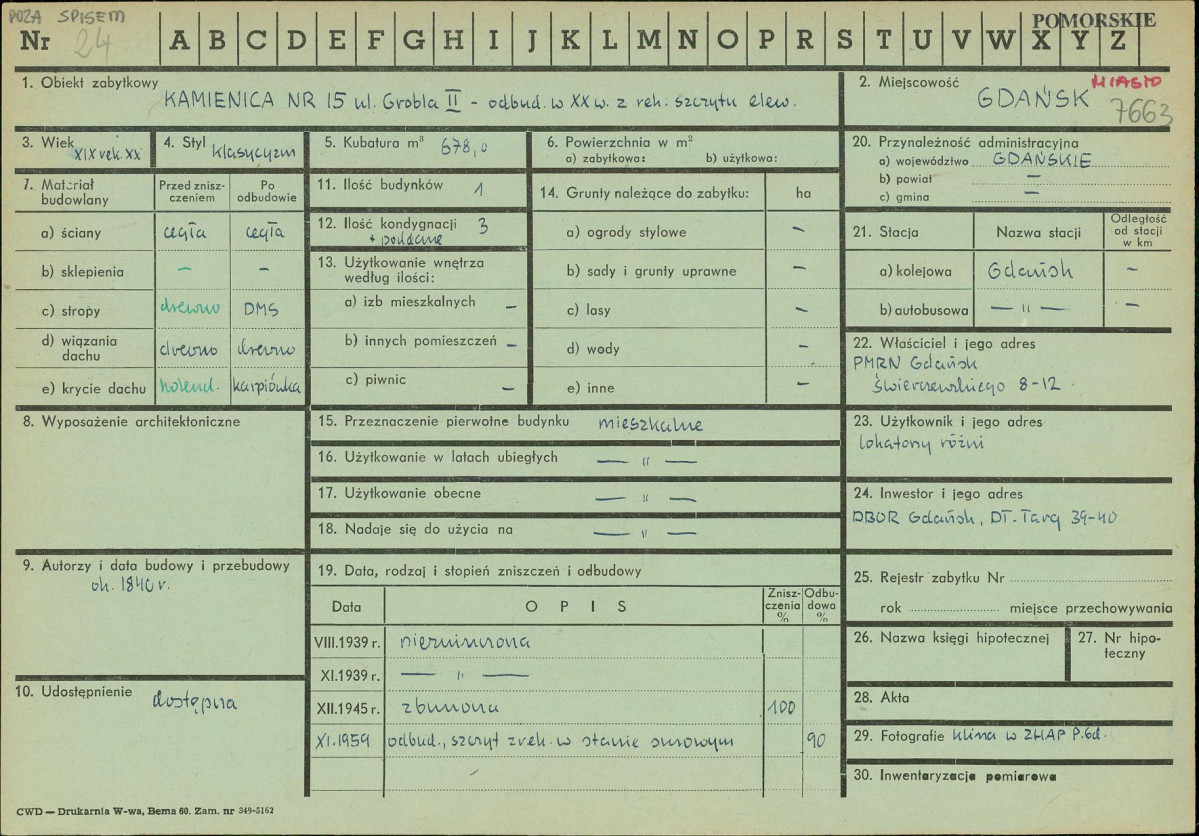 POZA SPISEM
POMORSKIE
Nr 24 A B C D E F G H I J K L M N O P R S T U V W X Y Z
1. Obiekt zabytkowy
KAMIENICA NR 15 ul. Grobla II - odbud. w XX w. z rek. szczytu elew.
2. Miejscowość MIASTO
GDAŃSK 7663
3. Wiek
XIX rek. XX
4. Styl klasycyzm
5. Kubatura m³ 678,0
6. Powierzchnia w m²
a) zabytkowa: b) użytkowa:
20. Przynależność administracyjna
a) województwo GDAŃSKIE
b) powiat —
c) gmina —
7. Materiał budowlany
Przed znisz-
czeniem
Po
odbudowie
a) ściany cegła cegła
b) sklepienia — —
c) stropy drewno DMS
d) wiązania
dachu drewno drewno
e) krycie dachu holend. karpiówka
11. Ilość budynków 1
12. Ilość kondygnacji 3
+ poddasze
13. Użytkowanie wnętrza
według ilości:
a) izb mieszkalnych —
b) innych pomieszczeń —
c) piwnic —
14. Grunty należące do zabytku: ha
a) ogrody stylowe —
b) sady i grunty uprawne —
c) lasy —
d) wody —
e) inne —
21. Stacja Nazwa stacji
Odległość
od stacji
w km
a) kolejowa Gdańsk —
b) autobusowa — " — —
22. Właściciel i jego adres
PMRN Gdańsk
Świerczewskiego 8-12
8. Wyposażenie architektoniczne
15. Przeznaczenie pierwotne budynku mieszkalne
16. Użytkowanie w latach ubiegłych — " —
17. Użytkowanie obecne — " —
18. Nadaje się do użycia na — " —
23. Użytkownik i jego adres
lokatorzy różni
24. Inwestor i jego adres
DBOR Gdańsk, Dł. Targ 39-40
9. Autorzy i data budowy i przebudowy
ok. 1840 r.
10. Udostępnienie dostępna
19. Data, rodzaj i stopień zniszczeń i odbudowy
Data OPIS
Znisz-
czenia
%
Odbu-
dowa
%
VIII.1939 r. niezniszczona
XI.1939 r. — " —
XII.1945 r. zburzona 100
XI.1959 odbud., szczyt zrek. w stanie surowym 90
25. Rejestr zabytku Nr
rok miejsce przechowywania
26. Nazwa księgi hipotecznej
27. Nr hipo-
teczny
28. Akta
29. Fotografie klisza w ZHAP P.Gd.
30. Inwentaryzacja pomiarowa
CWD — Drukarnia W-wa, Bema 60. Zam. nr 349-5162